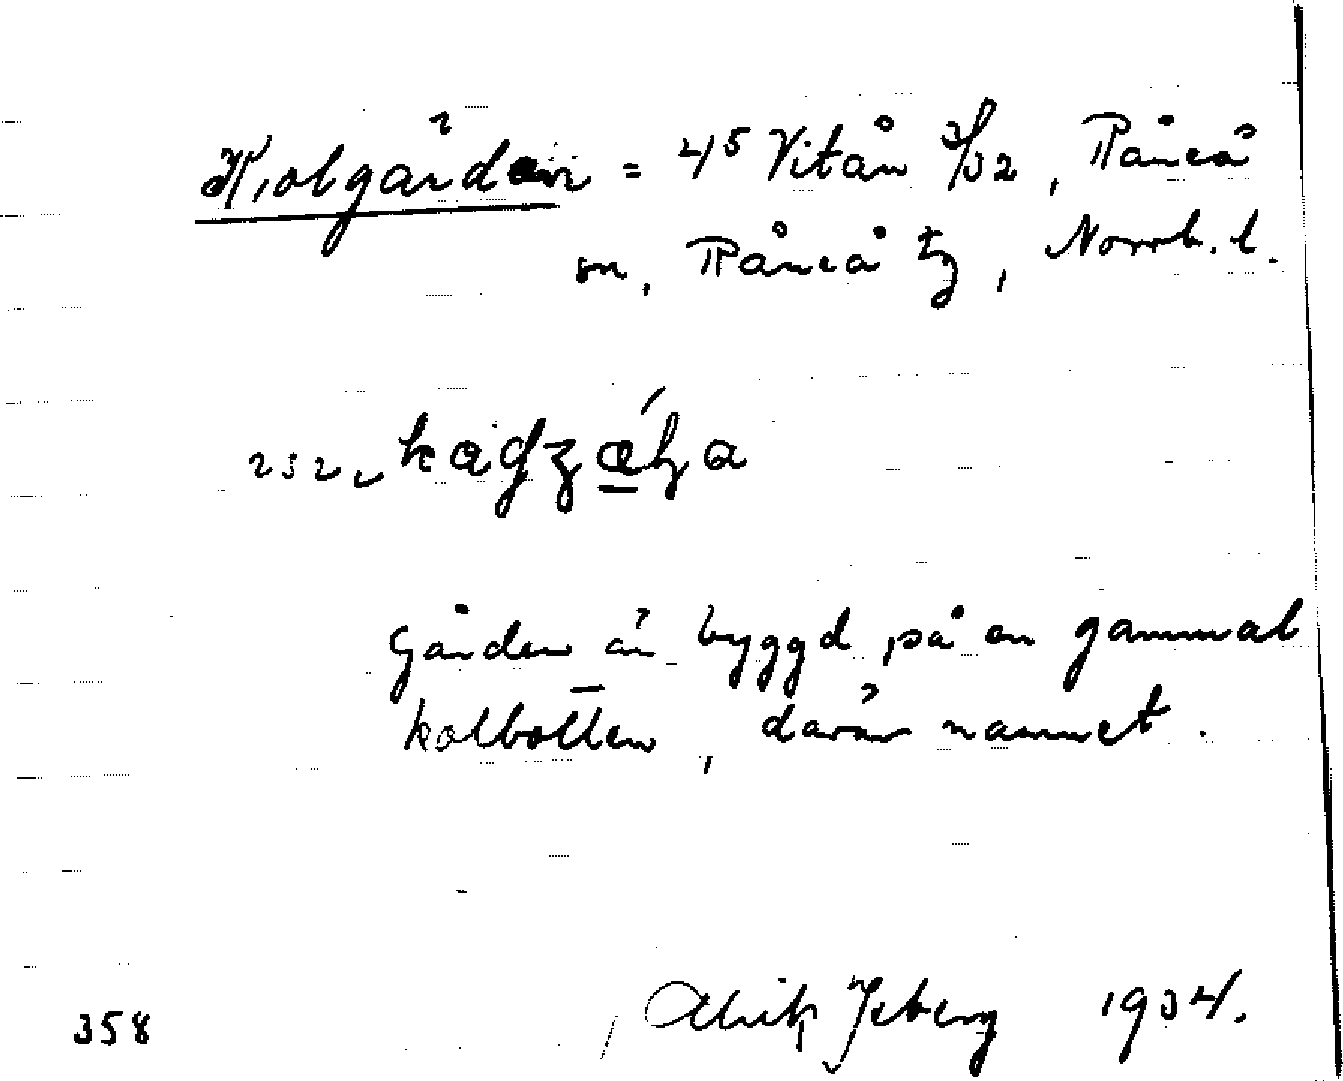 Kolgården = 4⁵ Vitån 3/32, Råneå
sn, Råneå tg, Norrb. l.
Gården är byggd på en gammal
kolbotten, därav namnet.
358 Ulrik Isberg 1934.